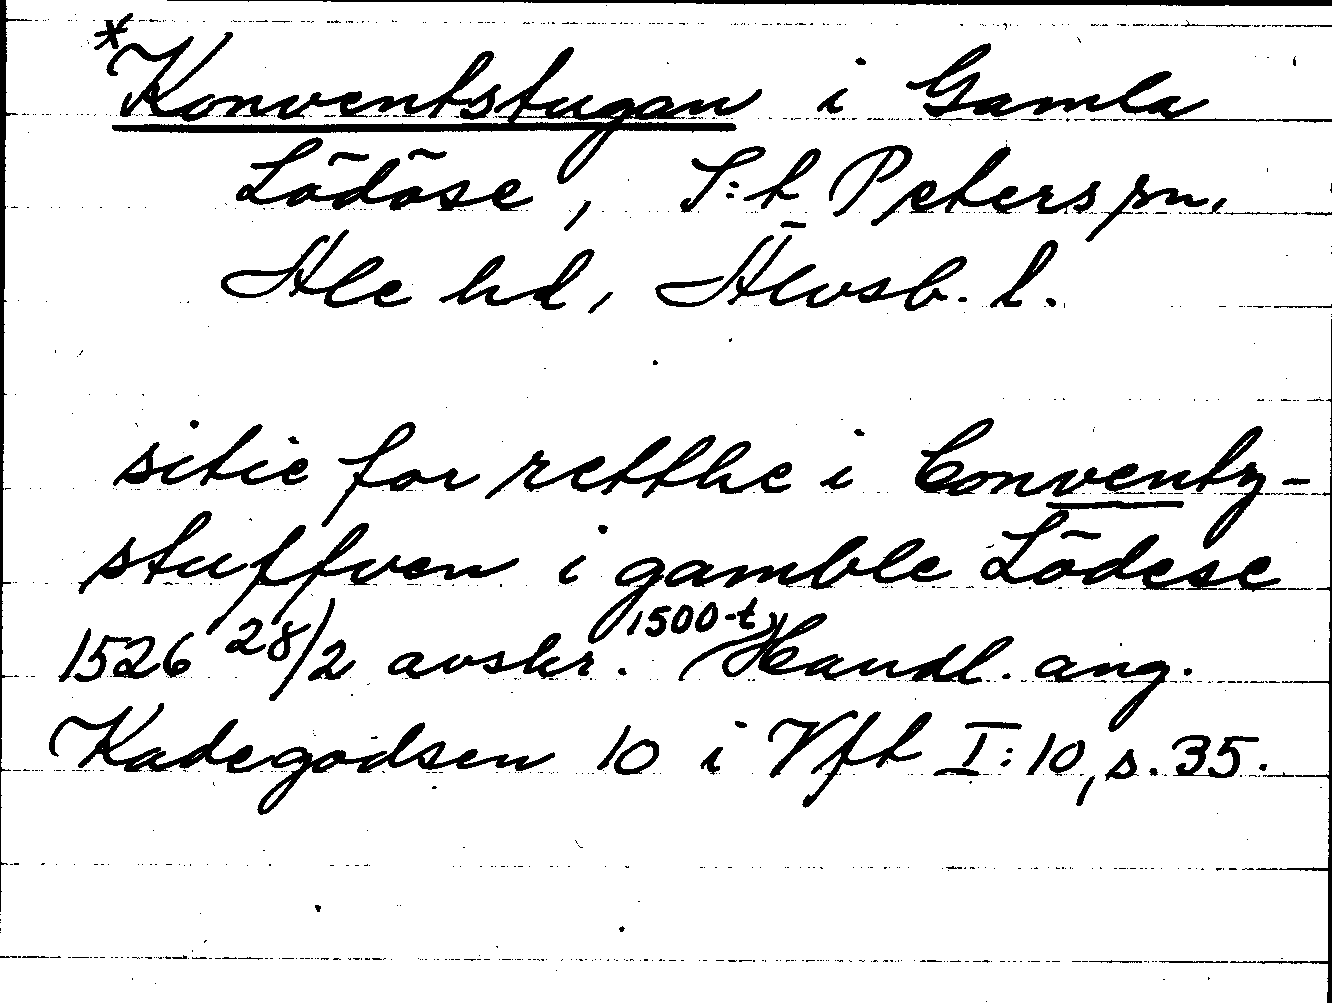 *Konventstugan i Gamla
Lödöse, S:t Peters sn.
Ale hd, Älvsb. l.
sitie for retthe i Conventz-
stuffven i gamble Lödese
1526 28/2 avskr. 1500-t, Handl. ang.
Kadegodsen 10 i Vft I:10, s. 35.